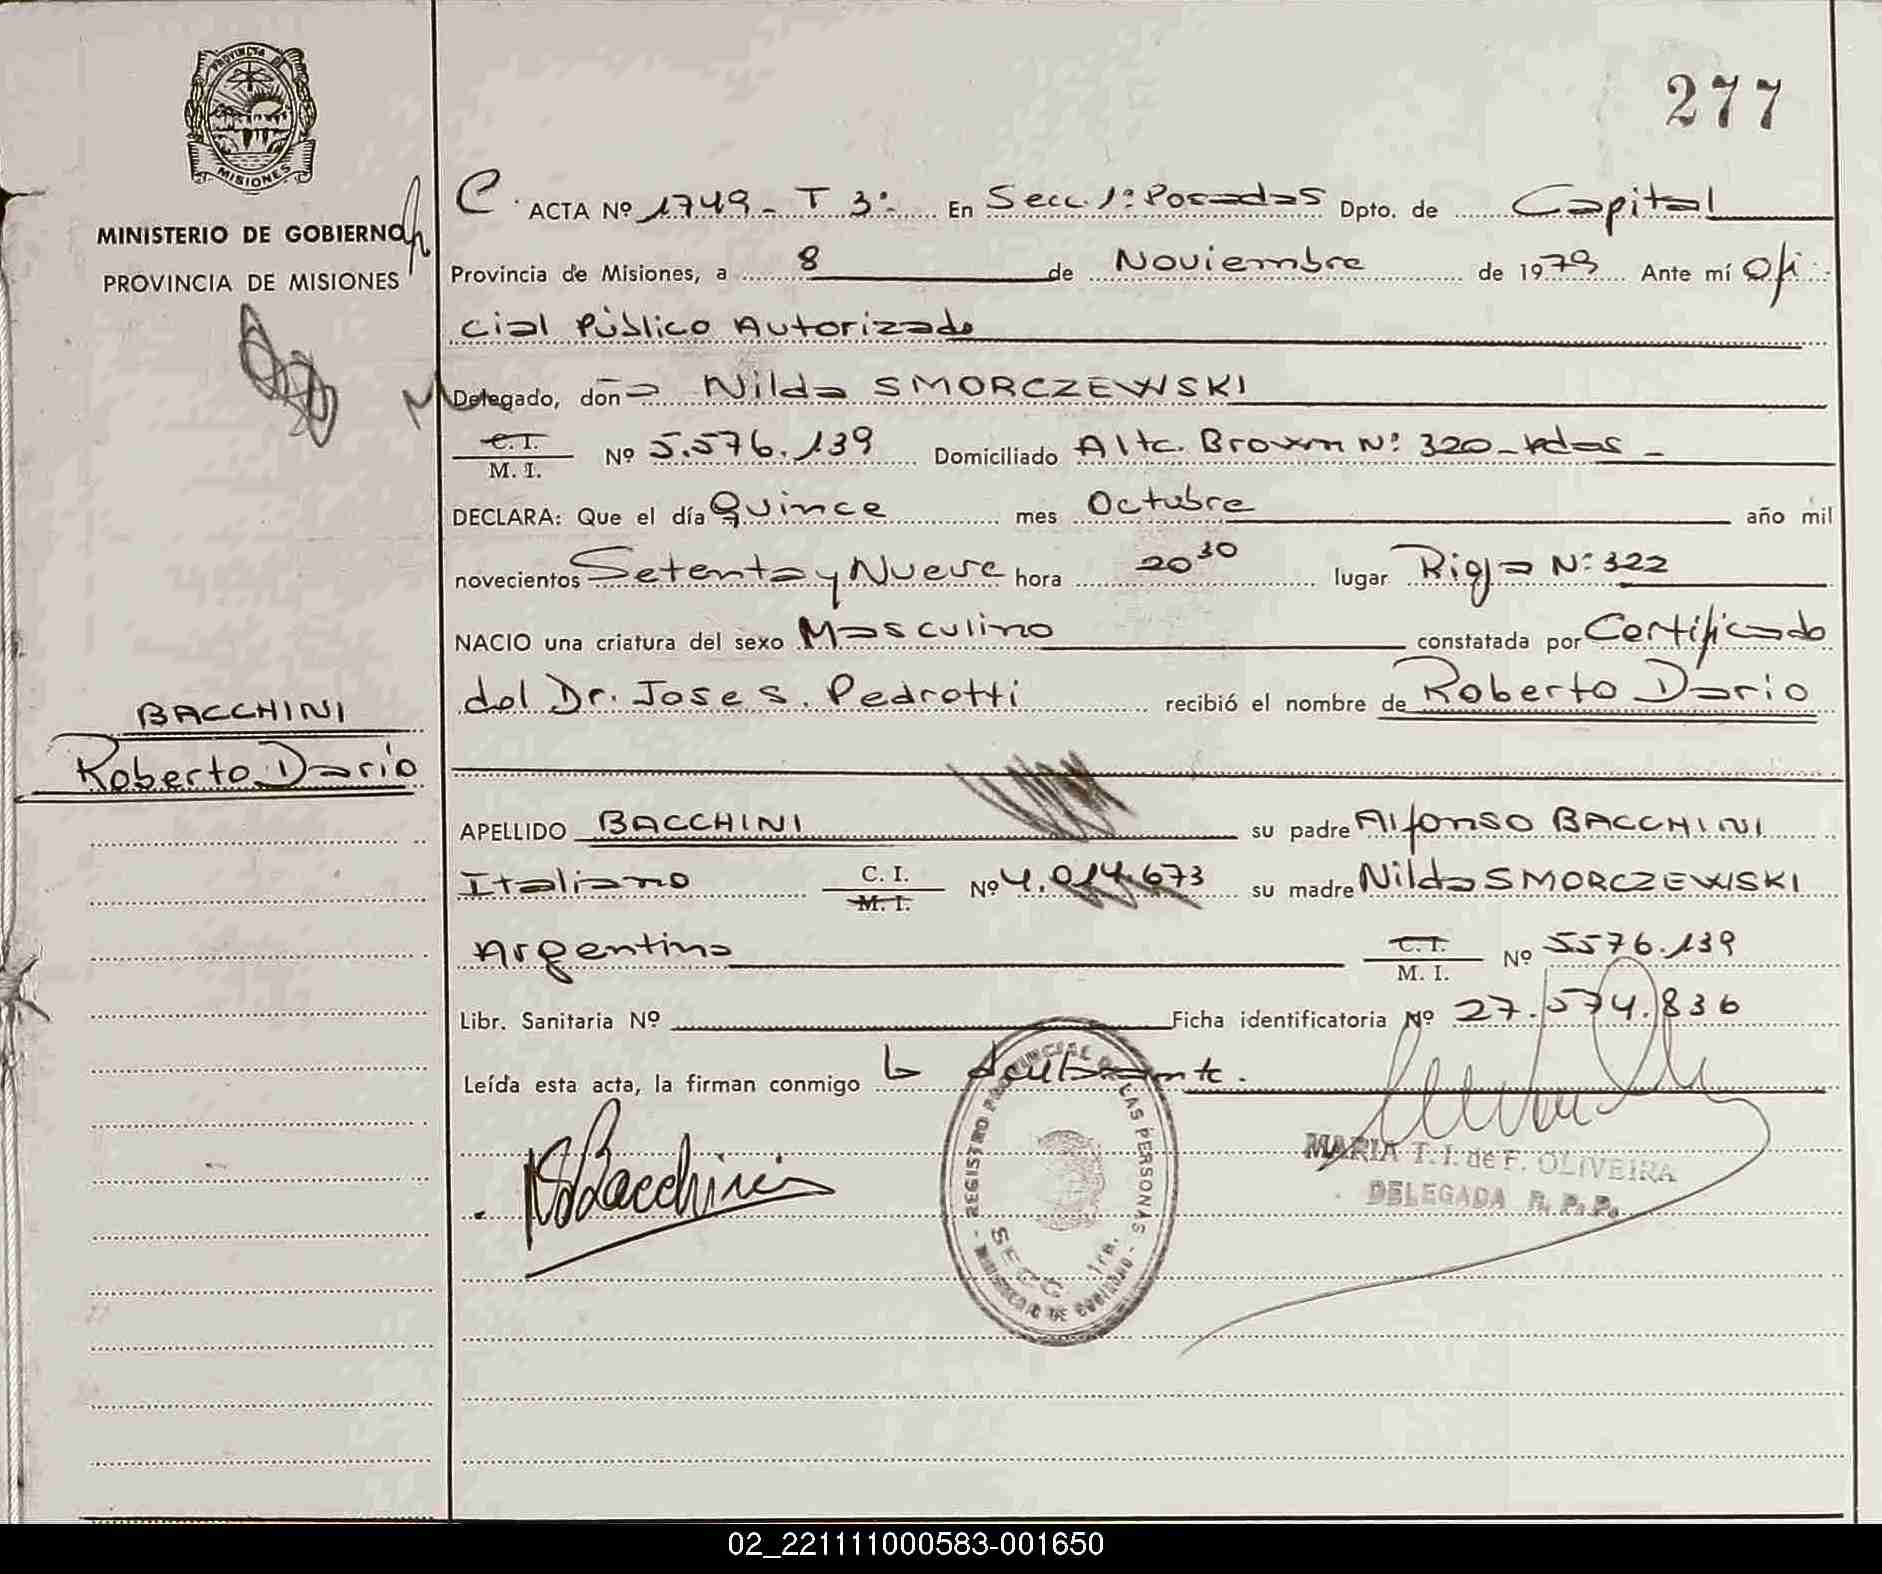 PROVINCIA DE
MISIONES
MINISTERIO DE GOBIERNO
PROVINCIA DE MISIONES
BACCHINI
Roberto Dario
277
C ACTA Nº 1749 - T 3º En Secc. 1º Posadas Dpto. de Capital
Provincia de Misiones, a 8 de Noviembre de 1979 Ante mí Ofi
cial Público Autorizado
Delegado, doña Nilda SMORCZEWSKI
C. I.
M. I. Nº 5.576.139 Domiciliado Alte. Brown Nº 320 - Pdas -
DECLARA: Que el día Quince mes Octubre año mil
novecientos Setenta y Nueve hora 20 30 lugar Rioja Nº 322
NACIO una criatura del sexo Masculino constatada por Certificado
del Dr. Jose S. Pedrotti recibió el nombre de Roberto Dario
APELLIDO BACCHINI su padre Alfonso BACCHINI
Italiano C. I. M. I. Nº 4.014.673 su madre Nilda SMORCZEWSKI
Argentina C. I. M. I. Nº 5576.139
Libr. Sanitaria Nº Ficha identificatoria Nº 27.574.836
Leída esta acta, la firman conmigo la declarante.
NSBacchini
REGISTRO PROVINCIAL DE LAS PERSONAS
SECC. 1ra.
- MINISTERIO DE GOBIERNO -
MARIA T. I. de F. OLIVEIRA
DELEGADA R. P. P.
02_221111000583-001650